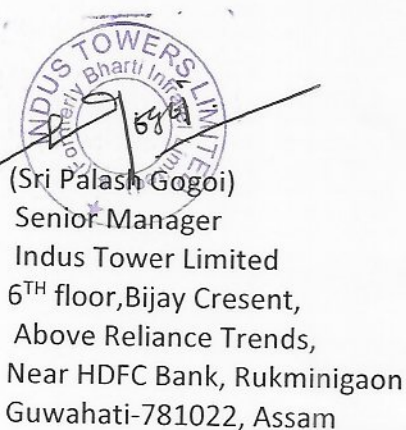 INDUS TOWERS LIMITED
(Formerly Bharti Infratel Limited)
(Sri Palash Gogoi)
Senior Manager
Indus Tower Limited
6TH floor,Bijay Cresent,
Above Reliance Trends,
Near HDFC Bank, Rukminigaon
Guwahati-781022, Assam